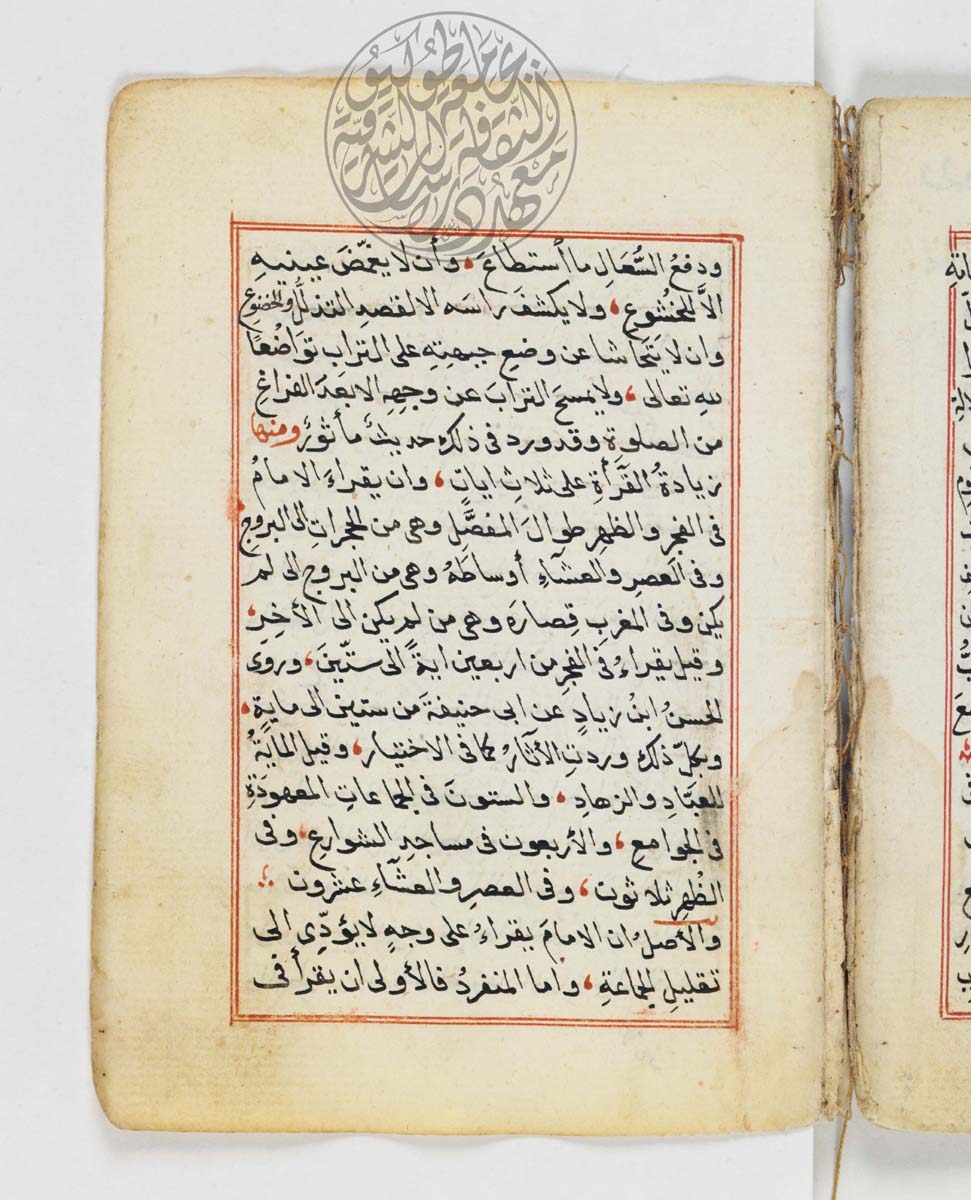 ودفعُ السُّعَالِ ما أستطاعَ، وأن لا يغمّضَ عينيهِ
الاَّ للخشوعِ، ولا يكشفَ راسَه الا لقصدِ التذللُّ والخضوع
وان لا يتحاشا عن وضعِ جبهتِهِ على التراب توَاضُعًا
للهِ تعالى، ولا يمسحَ الترابَ عن وجهِهِ الا بعدَ الفراغِ
من الصلوةِ وقد ورد فى ذلك حديثٌ مأثورٌ ومنها
زيادةُ القرَأةِ على ثلاثِ اياتٍ، وان يقراءَ الامامُ
فى الفجرِ والظهرِ طوالَ المفصَّلِ وهى من الحجراتِ الى البروجِ
وفى العصرِ والعشآءِ أوساطَهُ وهى من البروج الى لم
يكن وفى المغربِ قِصارَه وهى من لم يكن الى الأخِرِ،
وقيل يقراءُ فى الفجرِ من اربعين ايةً الى ستّينَ، وروى
الحسنُ ابنُ زيادٍ عن ابى حنيفةَ من ستين الى مايةٍ،
وبكلِّ ذلك وردتِ الأثارُ كما فى الاختيار، وقيل المايةُ
للعبّادِ والزهادِ، والستونَ فى الجماعاتِ المعهودَةِ
فى الجوامعِ، والأربعون فى مساجدِ الشوارعِ، وفى
الظهرِ ثلاثون، وفى العصرِ والعشآءِ عشرون
والأصلُ ان الامامَ يقراءُ على وجهٍ لا يؤدِّى الى
تقليلِ الجماعةِ، واما المنفردُ فالأولى ان يقرأ فى